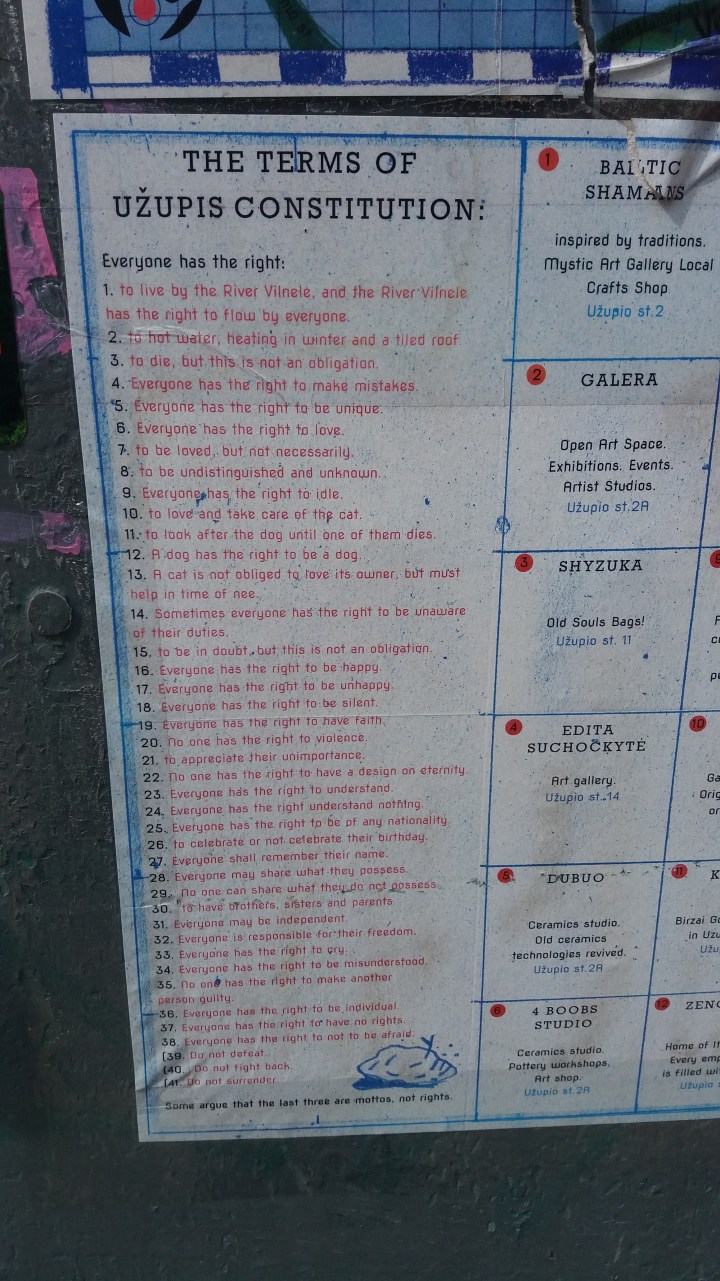 THE TERMS OF
UŽUPIS CONSTITUTION:
Everyone has the right:
1. to live by the River Vilnele, and the River Vilnele
has the right to flow by everyone.
2. to hot water, heating in winter and a tiled roof.
3. to die, but this is not an obligation.
4. Everyone has the right to make mistakes.
5. Everyone has the right to be unique.
6. Everyone has the right to love.
7. to be loved, but not necessarily.
8. to be undistinguished and unknown.
9. Everyone has the right to idle.
10. to love and take care of the cat.
11. to look after the dog until one of them dies.
12. A dog has the right to be a dog.
13. A cat is not obliged to love its owner, but must
help in time of nee.
14. Sometimes everyone has the right to be unaware
of their duties.
15. to be in doubt, but this is not an obligation.
16. Everyone has the right to be happy.
17. Everyone has the right to be unhappy.
18. Everyone has the right to be silent.
19. Everyone has the right to have faith.
20. No one has the right to violence.
21. to appreciate their unimportance.
22. No one has the right to have a design on eternity.
23. Everyone has the right to understand.
24. Everyone has the right understand nothing.
25. Everyone has the right to be of any nationality.
26. to celebrate or not celebrate their birthday.
27. Everyone shall remember their name.
28. Everyone may share what they possess.
29. No one can share what they do not possess.
30. to have brothers, sisters and parents.
31. Everyone may be independent.
32. Everyone is responsible for their freedom.
33. Everyone has the right to cry.
34. Everyone has the right to be misunderstood.
35. No one has the right to make another
person guilty.
36. Everyone has the right to be individual.
37. Everyone has the right to have no rights.
38. Everyone has the right to not to be afraid.
(39. Do not defeat.
(40. Do not fight back.
(41. Do not surrender.
Some argue that the last three are mottos, not rights.
1
BALTIC
SHAMANS
inspired by traditions.
Mystic Art Gallery Local
Crafts Shop
Užupio st.2
2
GALERA
Open Art Space.
Exhibitions. Events.
Artist Studios.
Užupio st.2A
3
SHYZUKA
Old Souls Bags!
Užupio st. 11
4
EDITA
SUCHOČKYTĖ
Art gallery.
Užupio st.14
5
DUBUO
Ceramics studio.
Old ceramics
technologies revived.
Užupio st.2A
6
4 BOOBS
STUDIO
Ceramics studio.
Pottery workshops,
Art shop.
Užupio st.2A
10
11
K
Birzai
in
12
Home of
Every
is filled